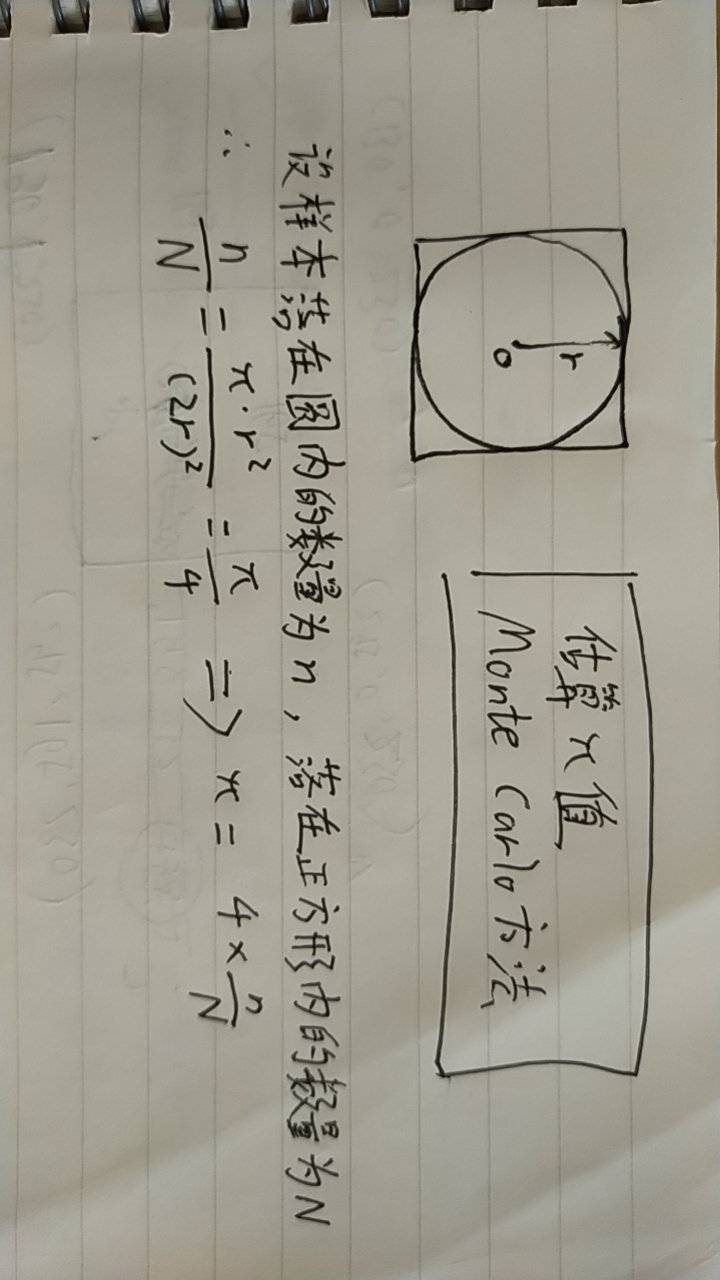 r
o
估算π值
Monte Carlo 方法
设样本落在圆内的数量为n，落在正方形内的数量为N
∴ n/N = π·r²/(2r)² = π/4 => π = 4×n/N